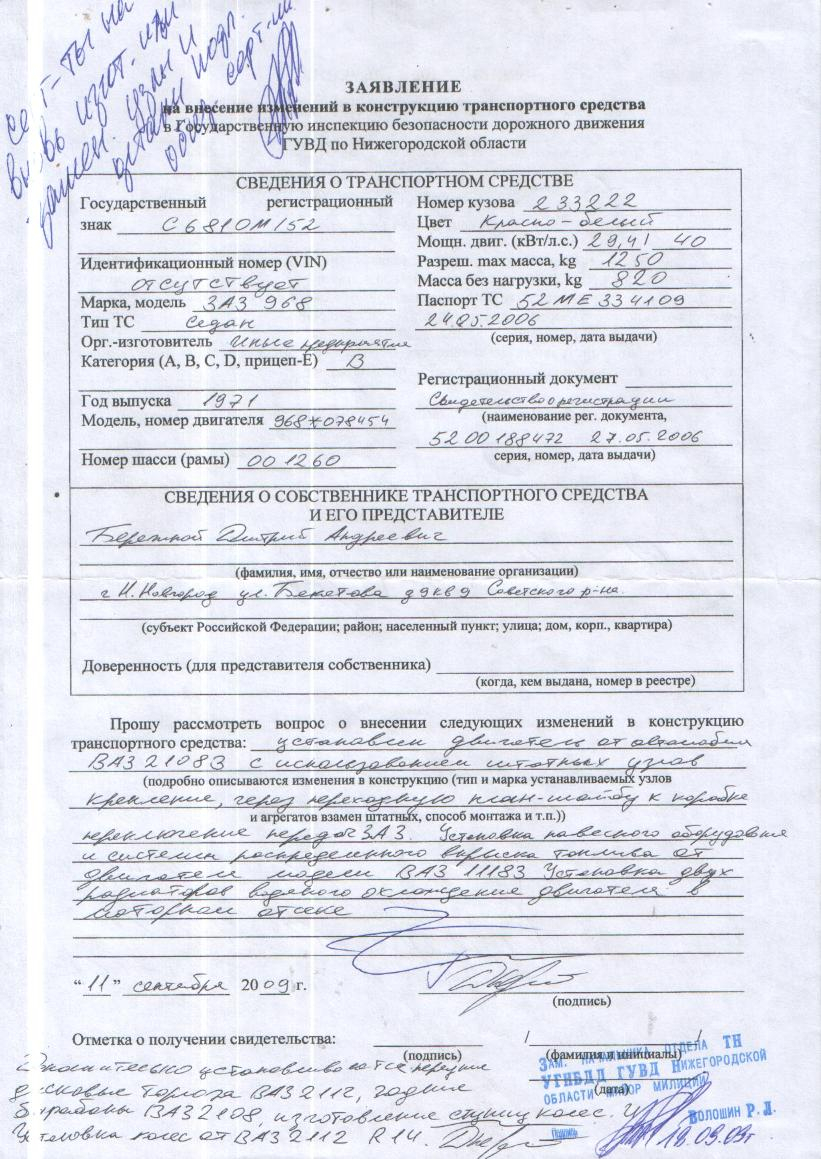 серт-ты на
вновь изгот. и
замен. узлы и
детали подл.
обяз. серт-ии
ЗАЯВЛЕНИЕ
на внесение изменений в конструкцию транспортного средства
в Государственную инспекцию безопасности дорожного движения
ГУВД по Нижегородской области
СВЕДЕНИЯ О ТРАНСПОРТНОМ СРЕДСТВЕ
Государственный регистрационный
знак С681ОМ/52
Идентификационный номер (VIN)
отсутствует
Марка, модель ЗАЗ 968
Тип ТС седан
Орг.-изготовитель Иные предприятия
Категория (A, B, C, D, прицеп-E) B
Год выпуска 1971
Модель, номер двигателя 968*078454
Номер шасси (рамы) 001260
Номер кузова 233222
Цвет Красно-белый
Мощн. двиг. (кВт/л.с.) 29,4/ 40
Разреш. max масса, kg 1250
Масса без нагрузки, kg 820
Паспорт ТС 52 МЕ 334109
24.05.2006
(серия, номер, дата выдачи)
Регистрационный документ
Свидетельство о регистрации
(наименование рег. документа,
52 00 188472 27.05.2006
серия, номер, дата выдачи)
СВЕДЕНИЯ О СОБСТВЕННИКЕ ТРАНСПОРТНОГО СРЕДСТВА
И ЕГО ПРЕДСТАВИТЕЛЕ
Бережной Дмитрий Андреевич
(фамилия, имя, отчество или наименование организации)
г Н.Новгород ул. Бекетова д9 кв9 Советского р-на.
(субъект Российской Федерации; район; населенный пункт; улица; дом, корп., квартира)
Доверенность (для представителя собственника)
(когда, кем выдана, номер в реестре)
Прошу рассмотреть вопрос о внесении следующих изменений в конструкцию
транспортного средства: установки двигатель от автомобиля
ВАЗ 21083 с использованием штатных узлов
(подробно описываются изменения в конструкцию (тип и марка устанавливаемых узлов
крепление, через переходную план-шайбу к коробке
и агрегатов взамен штатных, способ монтажа и т.п.))
переключение передач ЗАЗ. Установка навесного оборудования
и системы распределенного впрыска топлива от
двигателя модели ВАЗ 11183 Установка двух
радиаторов водяного охлаждение двигателя в
моторном отсеке
“ 11 ” сентября 20 09 г.
(подпись)
Отметка о получении свидетельства:
/ /
(подпись) (фамилия и инициалы)
(дата)
Дополнительно устанавливаются передние
дисковые тормоза ВАЗ 2112, задние
барабаны ВАЗ 2108, изготовление ступиц колес. И
Установка колес от ВАЗ 2112 R 14.
ЗАМ. НАЧАЛЬНИКА ОТДЕЛА ТН
УГИБДД ГУВД НИЖЕГОРОДСКОЙ
ОБЛАСТИ МАЙОР МИЛИЦИИ
Подпись
ВОЛОШИН Р. Л.
18.09.09г